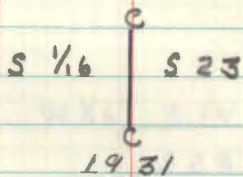 C
S 1/16 S 23
C
1931